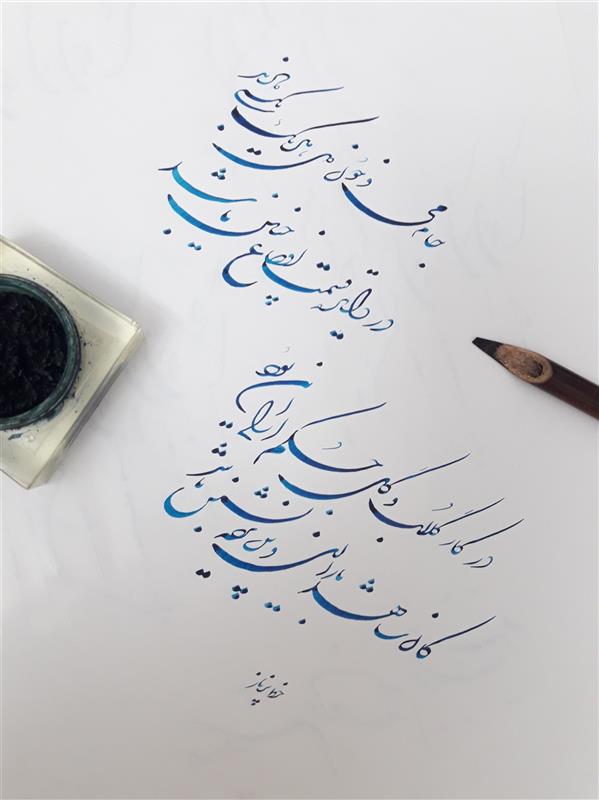 جام می و خون دل هر یک به کسی دادند
در دایره قسمت اوضاع چنین باشد
در کار گلاب و گل حکم ازلی این بود
کاین شاهد بازاری وان پرده نشین باشد
خط